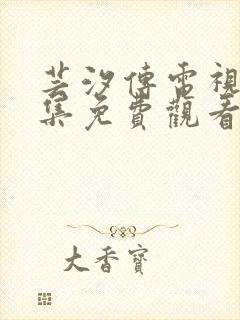 芸汐傳電視
集免費觀看
大香寶